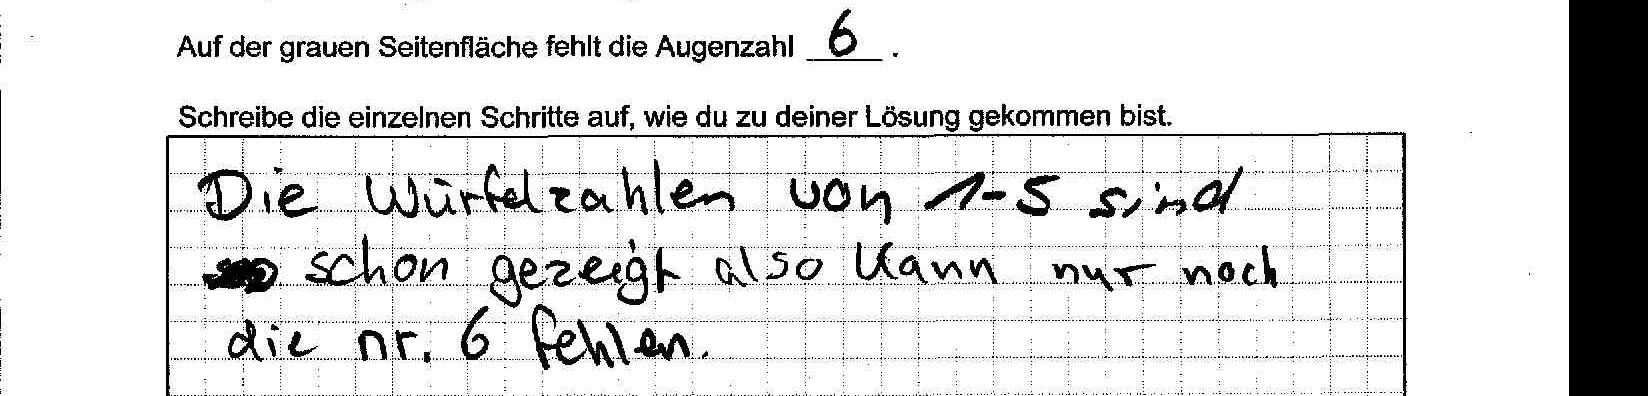 Auf der grauen Seitenfläche fehlt die Augenzahl 6 .
Schreibe die einzelnen Schritte auf, wie du zu deiner Lösung gekommen bist.
Die Würfelzahlen von 1-5 sind
schon gezeigt also kann nur noch
die nr. 6 fehlen.